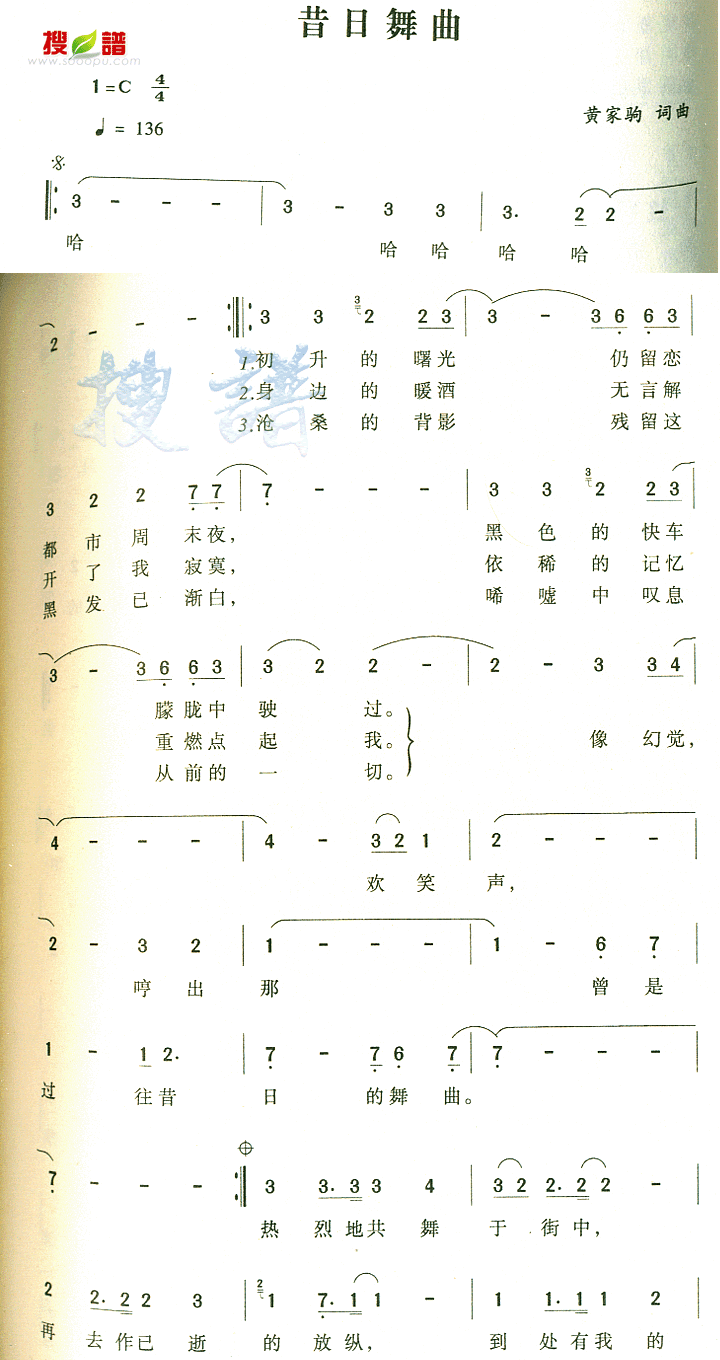 昔日舞曲
搜谱
www.sooopu.com
1=C 4/4
♩= 136
黄家驹 词曲
3 - - - | 3 - 3 3 | 3. 2 2 - |
哈 哈 哈 哈 哈
2 - - - 3 3 3 2 2 3 | 3 - 3 6 6 3 |
搜谱
1.初 升 的 曙光 仍留恋
2.身 边 的 暖酒 无言解
3.沧 桑 的 背影 残留这
3 2 2 7 7 | 7 - - - | 3 3 3 2 2 3 |
都 市 周 末夜, 黑 色 的 快车
开 了 我 寂寞, 依 稀 的 记忆
黑 发 已 渐白, 唏 嘘 中 叹息
3 - 3 6 6 3 | 3 2 2 - | 2 - 3 3 4 |
朦胧中 驶 过。
重燃点 起 我。 像 幻觉,
从前的 一 切。
4 - - - | 4 - 3 2 1 | 2 - - - |
欢 笑 声,
2 - 3 2 | 1 - - - | 1 - 6 7 |
哼 出 那 曾 是
1 - 1 2. | 7 - 7 6 7 | 7 - - - |
过 往昔 日 的舞 曲。
7 - - - 3 3. 3 3 4 | 3 2 2. 2 2 - |
热 烈地共 舞 于 街中,
2 2. 2 2 3 | 2 1 7. 1 1 - | 1 1. 1 1 2 |
再 去作已 逝 的 放纵, 到 处有我 的